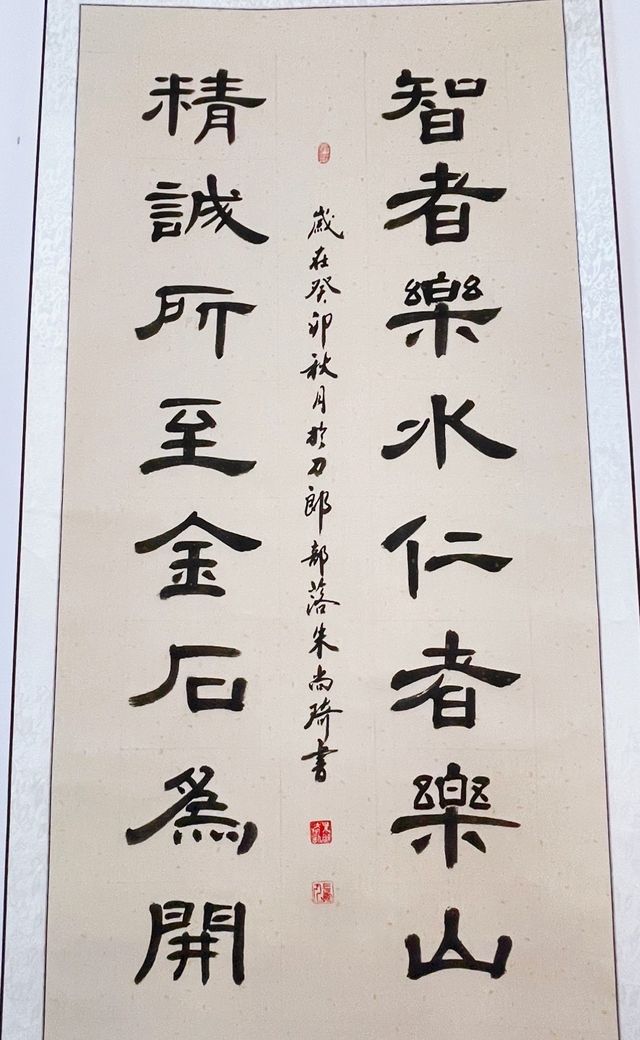 智者樂水仁者樂山
歲在癸卯秋月於刀郎部落朱尚琦書
精誠所至金石為開